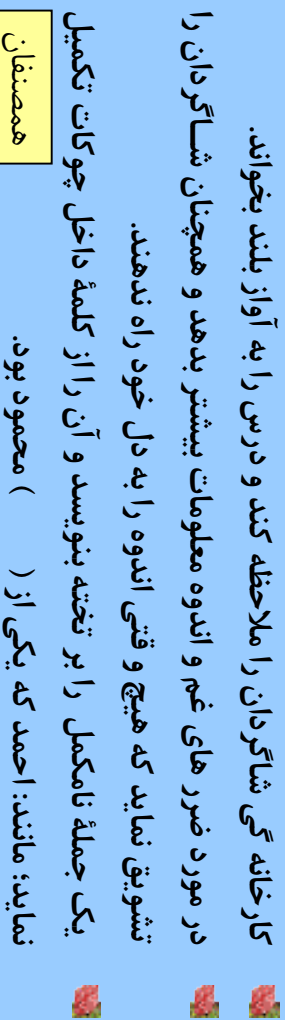 کارخانه گی شاگردان را ملاحظه کند و درس را به آواز بلند بخواند.
در مورد ضرر های غم و اندوه معلومات بیشتر بدهد و همچنان شاگردان را
تشویق نماید که هیچ و قتی اندوه را به دل خود راه ندهند.
یک جملهٔ نامکمل را بر تخته بنویسد و آن را از کلمهٔ داخل چوکات تکمیل
نماید؛ مانند: احمد که یکی از ( ) محمود بود.
همصنفان